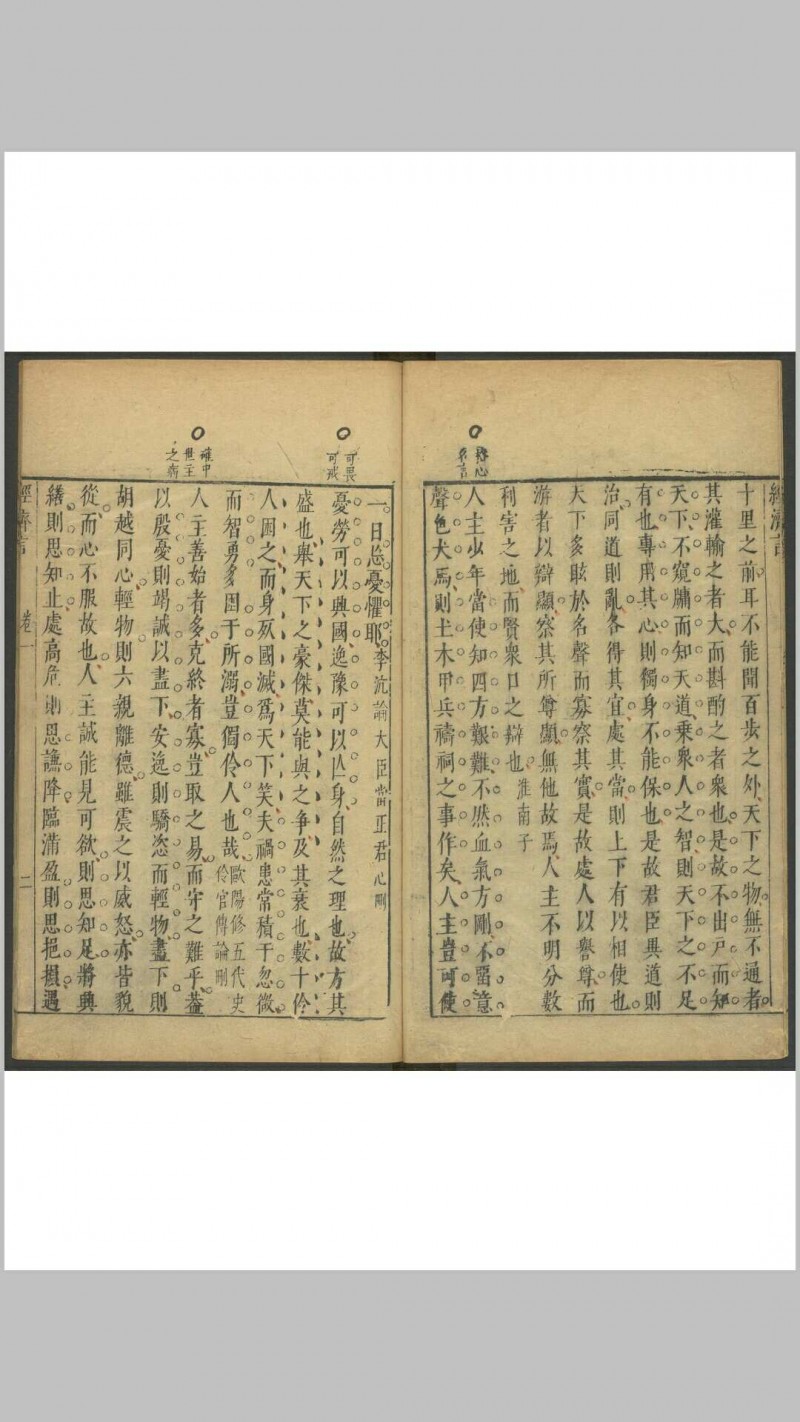 經濟言
十里之前耳不能聞百步之外天下之物無不通者
其灌輸之者大而斟酌之者衆也是故不出戸而知
天下不窺牖而知天道乘衆人之智則天下之不足
有也專用其心則獨身不能保也是故君臣異道則
治同道則亂各得其宜處其當則上下有以相使也
天下多眩於名聲而寡察其實是故處人以譽尊而
游者以辯顯察其所尊顯無他故焉人主不明分數
利害之地而賢衆口之辯也淮南子
名言
人主少年當使知四方艱難不然血氣方剛不留意
聲色犬馬則土木甲兵禱祠之事作矣人主豈可使
一日忘憂懼耶李沆論大臣當正君心刪
可畏
可戒
憂勞可以興國逸豫可以亡身自然之理也故方其
盛也舉天下之豪傑莫能與之爭及其衰也數十伶
人困之而身死國滅爲天下笑夫禍患常積于忽微
而智勇多困于所溺豈獨伶人也哉歐陽修五代史
伶官傳論刪
確中
世主
之病
人主善始者多克終者寡豈取之易而守之難乎蓋
以殷憂則竭誠以盡下安逸則驕恣而輕物盡下則
胡越同心輕物則六親離德雖震之以威怒亦皆貌
從而心不服故也人主誠能見可欲則思知足將興
繕則思知止處高危則思謙降臨滿盈則思挹損遇
經濟言
卷一
二